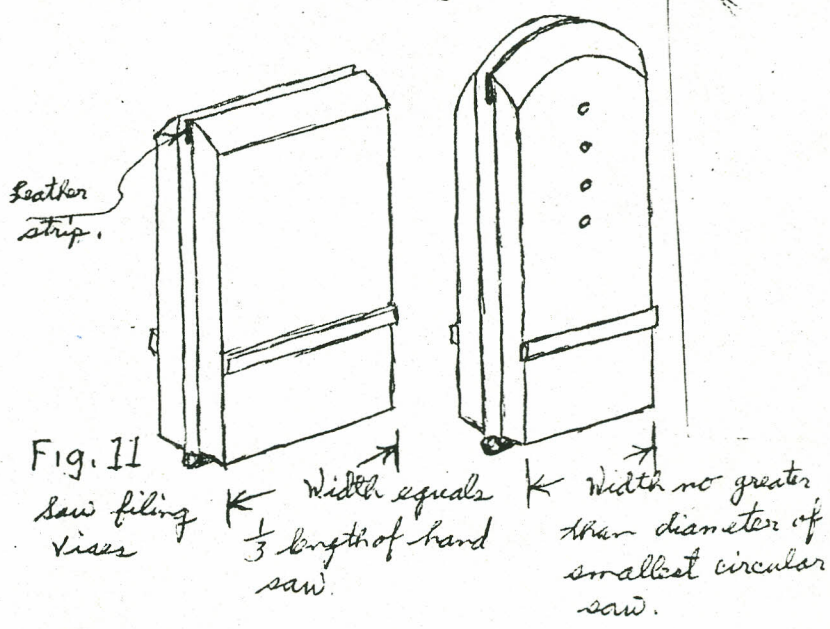 Leather
strip.
Fig. 11
Saw filing
Vises
Width equals
1/3 length of hand
saw.
Width no greater
than diameter of
smallest circular
saw.